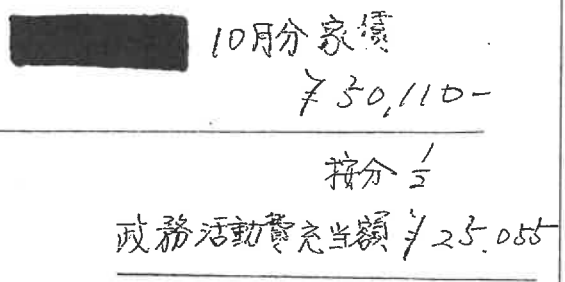 10月分家賃
¥50,110-
按分 1/2
政務活動費充当額 ¥25.055